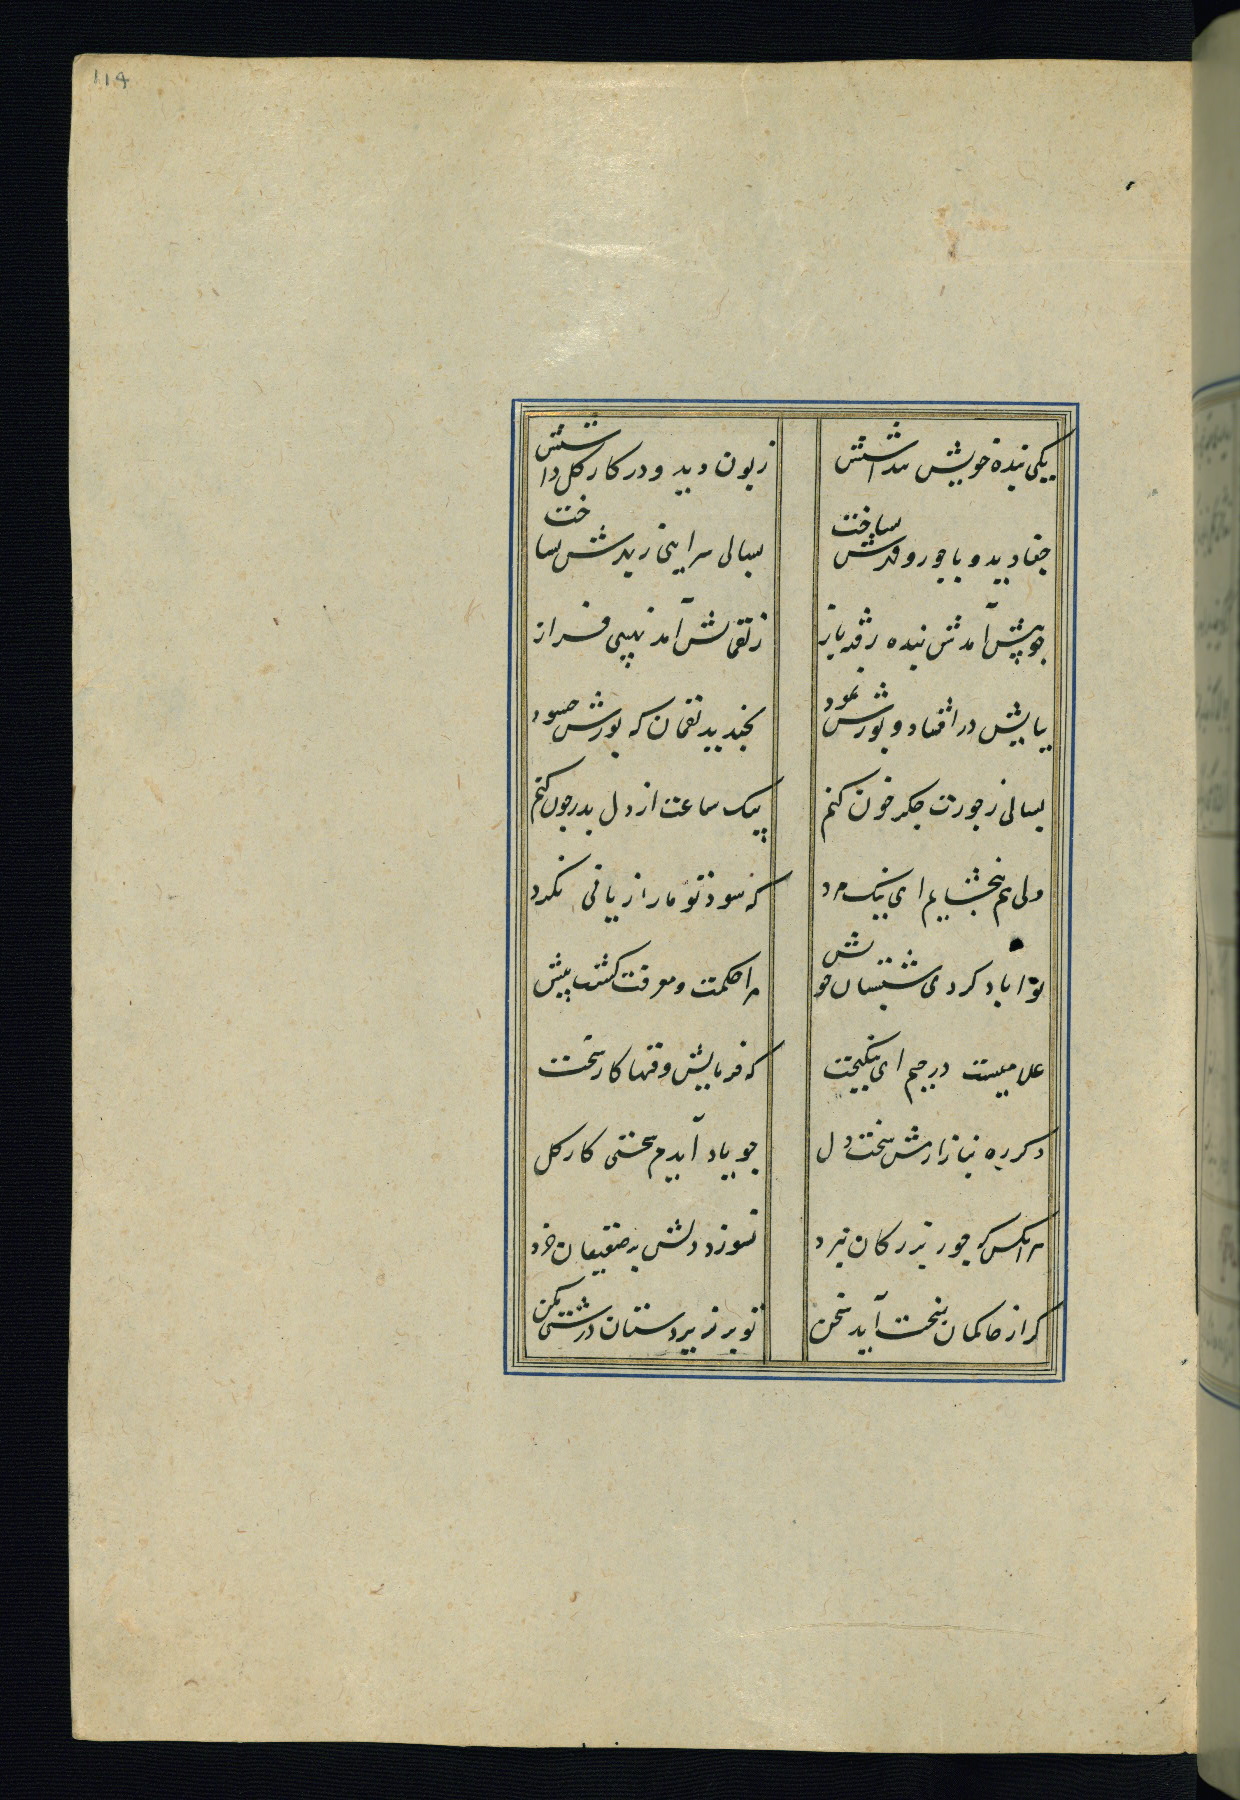 114
یکی بنده خویش پنداشتش زبون دید و در کار گل داشتش
جفا دید و با جور و قهرش بساخت بسالی سرایی ز بهرش بساخت
چو پیش آمدش بنده رفته باز ز لقمانش آمد نهیبی فراز
بپایش در افتاد و پوزش نمود بخندید لقمان که پوزش چه سود
بسالی ز جورت جگر خون کنم بیک ساعت از دل بدر چون کنم
ولی هم ببخشایم ای نیک مرد که سود تو ما را زیانی نکرد
تو آباد کردی شبستان خویش مرا حکمت و معرفت گشت بیش
غلامیست در خیلم ای نیکبخت که فرمایش وقتها کار سخت
دگر ره نیازارمش سخت دل چو یاد آیدم سختی کار گل
هر آنکس که جور بزرگان نبرد نسوزد دلش بر ضعیفان خرد
گر از حاکمان سخت آید سخن تو بر زیردستان درشتی مکن